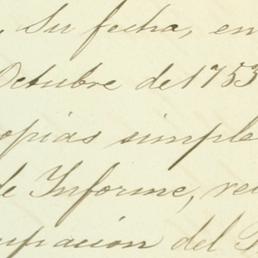 . Su fecha, en
Octubre de 1753
opias simple
de Informe, re
upación del